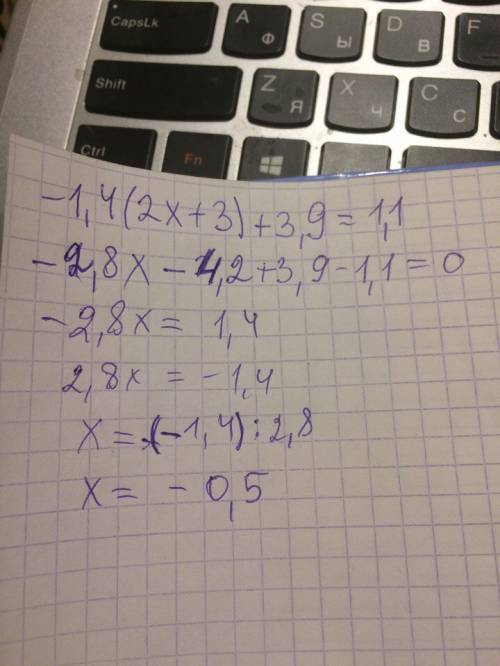 CapsLk A Ф S Ы D В F
Shift Z Я X Ч C С
Ctrl Fn
-1,4(2x+3)+3,9=1,1
-2,8x-4,2+3,9-1,1=0
-2,8x=1,4
2,8x=-1,4
x=(-1,4):2,8
x=-0,5